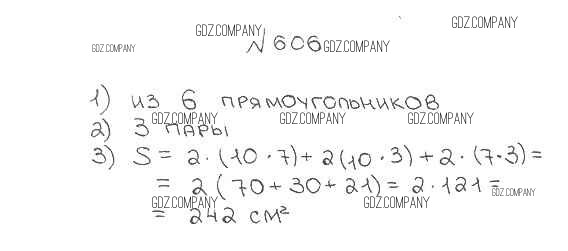 GDZ.COMPANY
GDZ.COMPANY
N 606 GDZ.COMPANY
GDZ.COMPANY
1) из 6 прямоугольников
GDZ.COMPANY GDZ.COMPANY GDZ.COMPANY
2) 3 пары
3) S = 2 · (10 · 7) + 2(10 · 3) + 2 · (7 · 3) =
= 2(70 + 30 + 21) = 2 · 121 =
GDZ.COMPANY
GDZ.COMPANY GDZ.COMPANY
= 242 см²